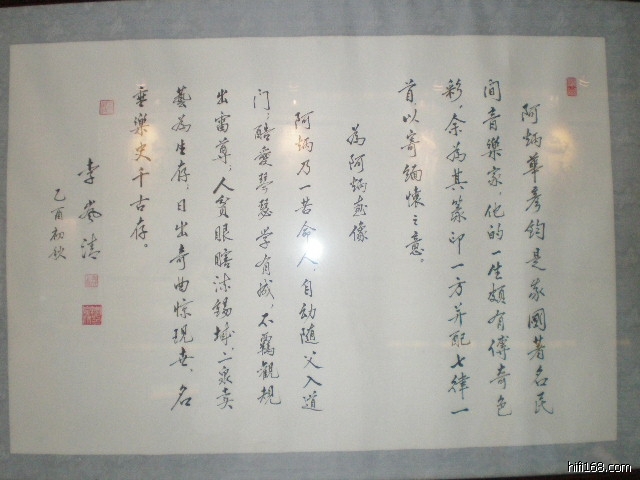 阿炳華彥鈞是我國著名民
間音樂家,他的一生頗有傳奇色
彩,余為其篆印一方并配七律一
首,以寄緬懷之意。
為阿炳造像
阿炳乃一苦命人,自幼隨父入道
門;酷愛琴瑟學有成,不羈觀規
出雷尊;人貧眼瞎流錫城,二泉賣
藝為生存,日出奇曲惊現世,名
垂樂史千古存。
李嵐清
乙酉初秋
hifi168.com